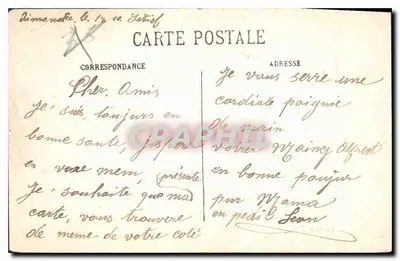 dimanche le 17 10 Sétif
CARTE POSTALE
CORRESPONDANCE
Cher, Amis
Je suis toujours en
bonne sante, j'espère
en mem,
presente
Je souhaite que ma
carte, vous trouvera
de meme de votre coté
ADRESSE
Je vous serre une
cordiale poignie
de main
votre
en bonne
pur Mama
en Jean
PRPhoto